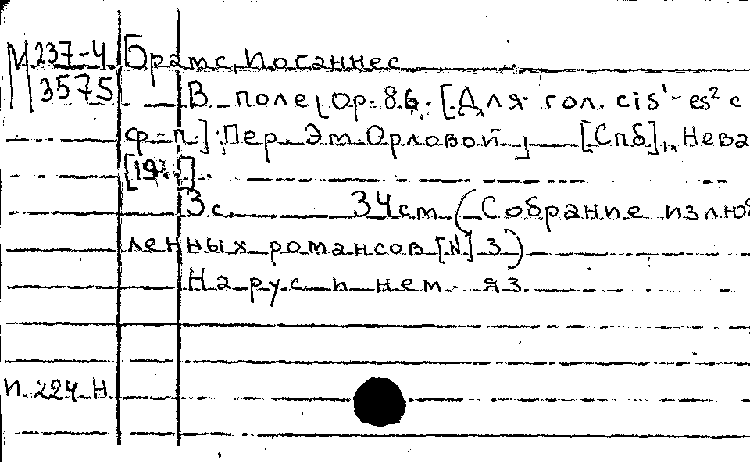 М 237-4 Брамс, Иоганнес
3575 В поле, Op. 86. [Для гол. cis¹-es² с
ф-п]; Пер. Эм. Орловой, [Спб], Нева
[19
3 с. 34 см (Собрание излюб
ленных романсов [N] 3)
На рус и нем яз.
п. 224 Н